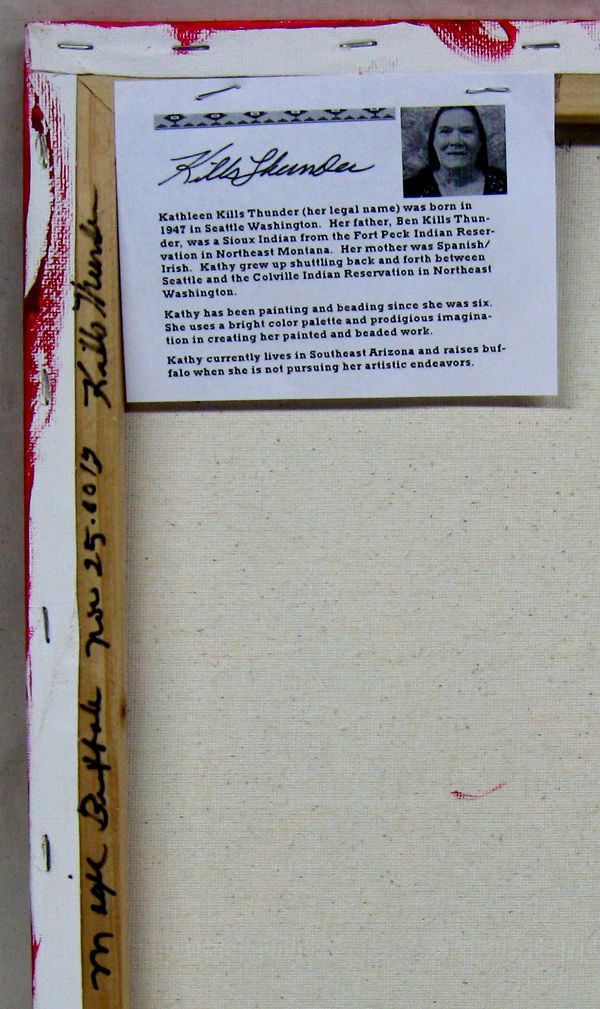 Kills Thunder
Kathleen Kills Thunder (her legal name) was born in
1947 in Seattle Washington. Her father, Ben Kills Thun-
der, was a Sioux Indian from the Fort Peck Indian Reser-
vation in Northeast Montana. Her mother was Spanish/
Irish. Kathy grew up shuttling back and forth between
Seattle and the Colville Indian Reservation in Northeast
Washington.
Kathy has been painting and beading since she was six.
She uses a bright color palette and prodigious imagina-
tion in creating her painted and beaded work.
Kathy currently lives in Southeast Arizona and raises buf-
falo when she is not pursuing her artistic endeavors.
Buffalo Nov 25. Kills Thunder